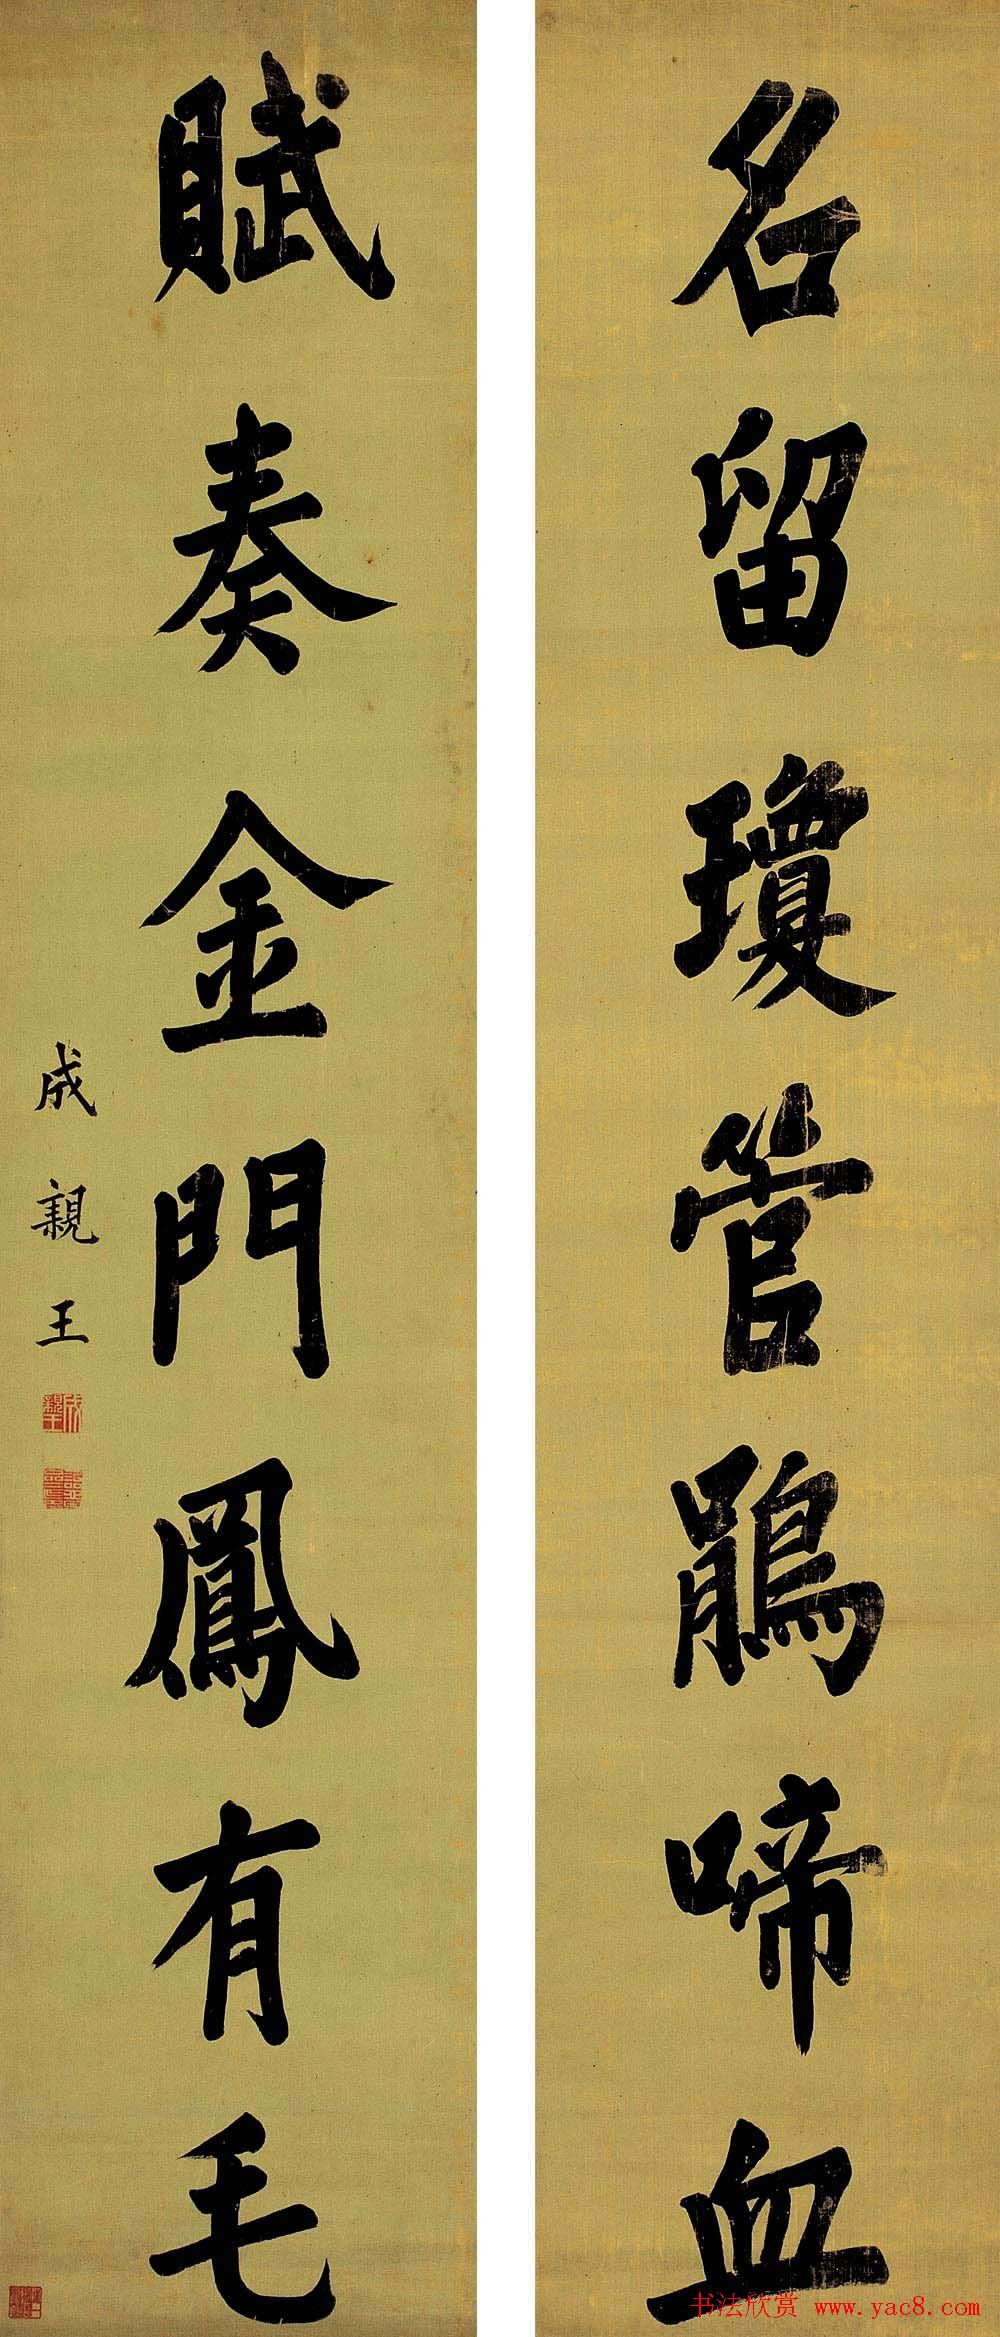 名留瓊管鵑啼血
賦奏金門鳳有毛
成親王
成親王
书法欣赏 www.yac8.com